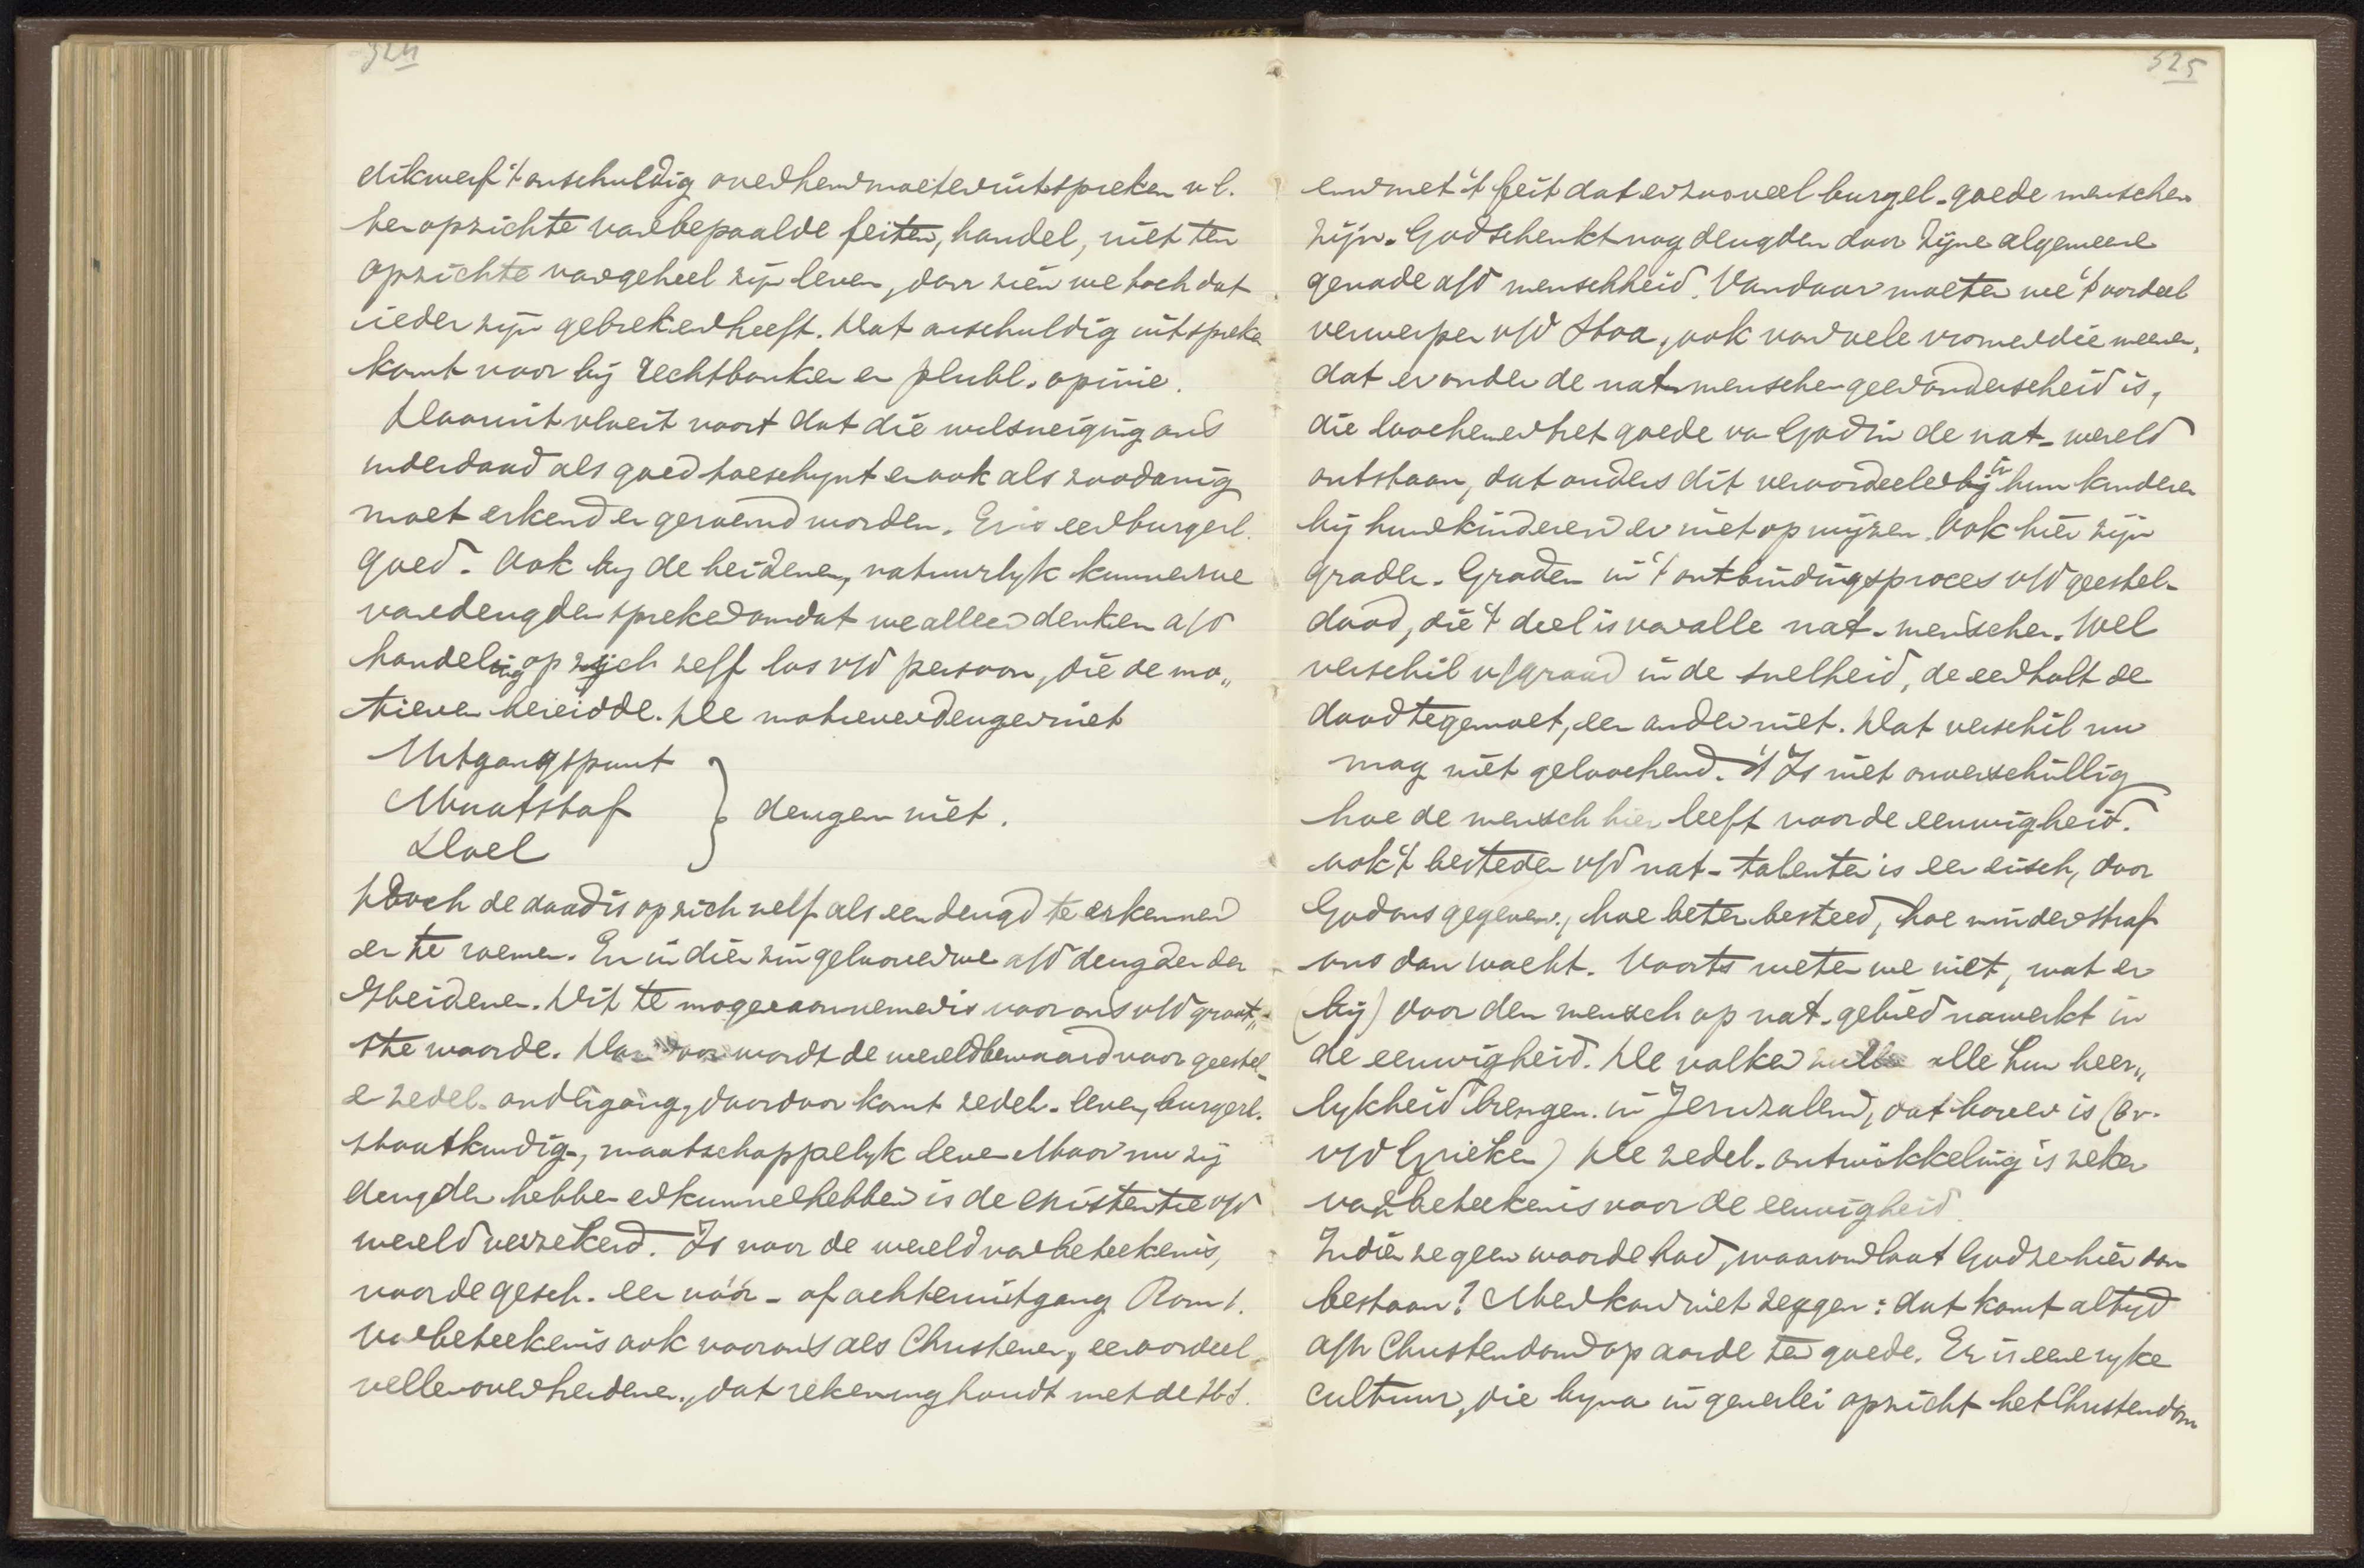 324
dikwerf 't onschuldig over hem moeten uitspreken nl.
ten opzichte van bepaalde feiten, handel, niet ten
opzichte van geheel zijn leven, daar zien we toch dat
ieder zijn gebreken heeft. Dat onschuldig uitspreken
komt voor bij rechtbanken en publ. opinie.
Daaruit vloeit voort dat die wilsneiging ons
inderdaad als goed toeschijnt en ook als zoodanig
moet erkend en geroemd worden. Er is een burgerl.
goed. Ook bij de heidenen, natuurlyk kunnen we
van deugden spreken omdat we alleen denken a/d
handeling op zich zelf los v/d persoon, die de mo„
tieven bereidde. De motieven deugen niet
Uitgangspunt
Maatstaf } deugen niet.
Doel
Doch de daad is op zich zelf als een deugd te erkennen
en te roemen. En in dien zin gelooven we a/d deugden der
Heidenen. Dit te mogen aannemen is voor ons v/d groot„
ste waarde. Daardoor wordt de wereld bewaard voor geestel-
e zedel. ondergang, daardoor komt zedel. leven, burgerl.
staatkundig-, maatschappelyk leven. Maar nu zij
deugden hebben en kunnen hebben is de existentie v/d
wereld verzekerd. Is voor de wereld van beteekenis,
voor de gesch. een vóór- of achteruitgang Rom 1.
Van beteekenis ook voor ons als Christenen, een oordeel
vellen over heidenen, dat rekening houdt met de H.S.
325
en met 't feit dat er zooveel burgel. goede menschen
zijn. God schenkt nog deugden door Zijne algemeene
genade a/d menschheid. Vandaar moeten we 't oordeel
verwerpen v/d Stoa, ook van vele vromen die meenen,
dat er onder de nat. menschen geen onderscheid is,
die loochenen het goede van God in de nat. wereld
ontstaan, dat anders dit veroordeelen bij in hun kinderen
bij hun kinderen er niet op wijzen. Ook hier zijn
graden. Graden in 't ontbindingsproces v/d geestel.
dood, die 't deel is van alle nat. menschen. Wel
verschil v/graad in de snelheid, de een holt de
dood tegemoet, een ander niet. Dat verschil nu
mag niet geloochend. 't Is niet onverschillig
hoe de mensch hier leeft voor de eeuwigheid.
ook 't besteden v/d nat. talenten is een eisch, door
God ons gegeven, hoe beter besteed, hoe minder straf
ons dan wacht. Voorts weten we niet, wat er
(bij) door den mensch op nat. gebied nawerkt in
de eeuwigheid. De volken zullen alle hun heer„
lykheid brengen in Jeruzalem, dat boven is (bv.
v/d Grieken) De zedel. ontwikkeling is zeker
van beteekenis voor de eeuwigheid.
Indien ze geen waarde had, waarom laat God ze hier dan
bestaan? Men kan niet zeggen: dat komt altyd
a/h Christendom op aarde ten goede. Er is eene ryke
cultuur, die byna in generlei opzicht het Christendom